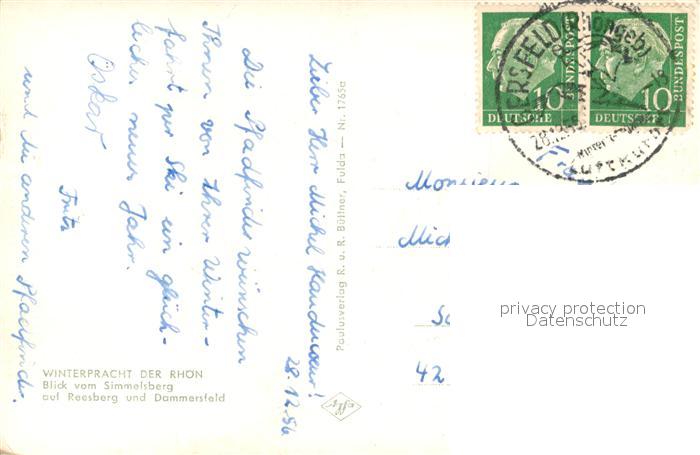 28.12.56
Lieber Herr Michel Handcoeur!
Die Pfadfinder wünschen
Ihnen von Ihrer Winter-
fahrt per Ski ein glück-
liches neues Jahr.
Oskar
Fritz
und die anderen Pfadfinder.
WINTERPRACHT DER RHÖN
Blick vom Simmelsberg
auf Reesberg und Dammersfeld
Paulusverlag R. u. R. Büttner, Fulda — Nr. 1765a
10
DEUTSCHE
BUNDESPOST
10
DEUTSCHE
BUNDESPOST
GERSFELD (Rhöngeb)
28.12.56
Monsieur
42
privacy protection
Datenschutz